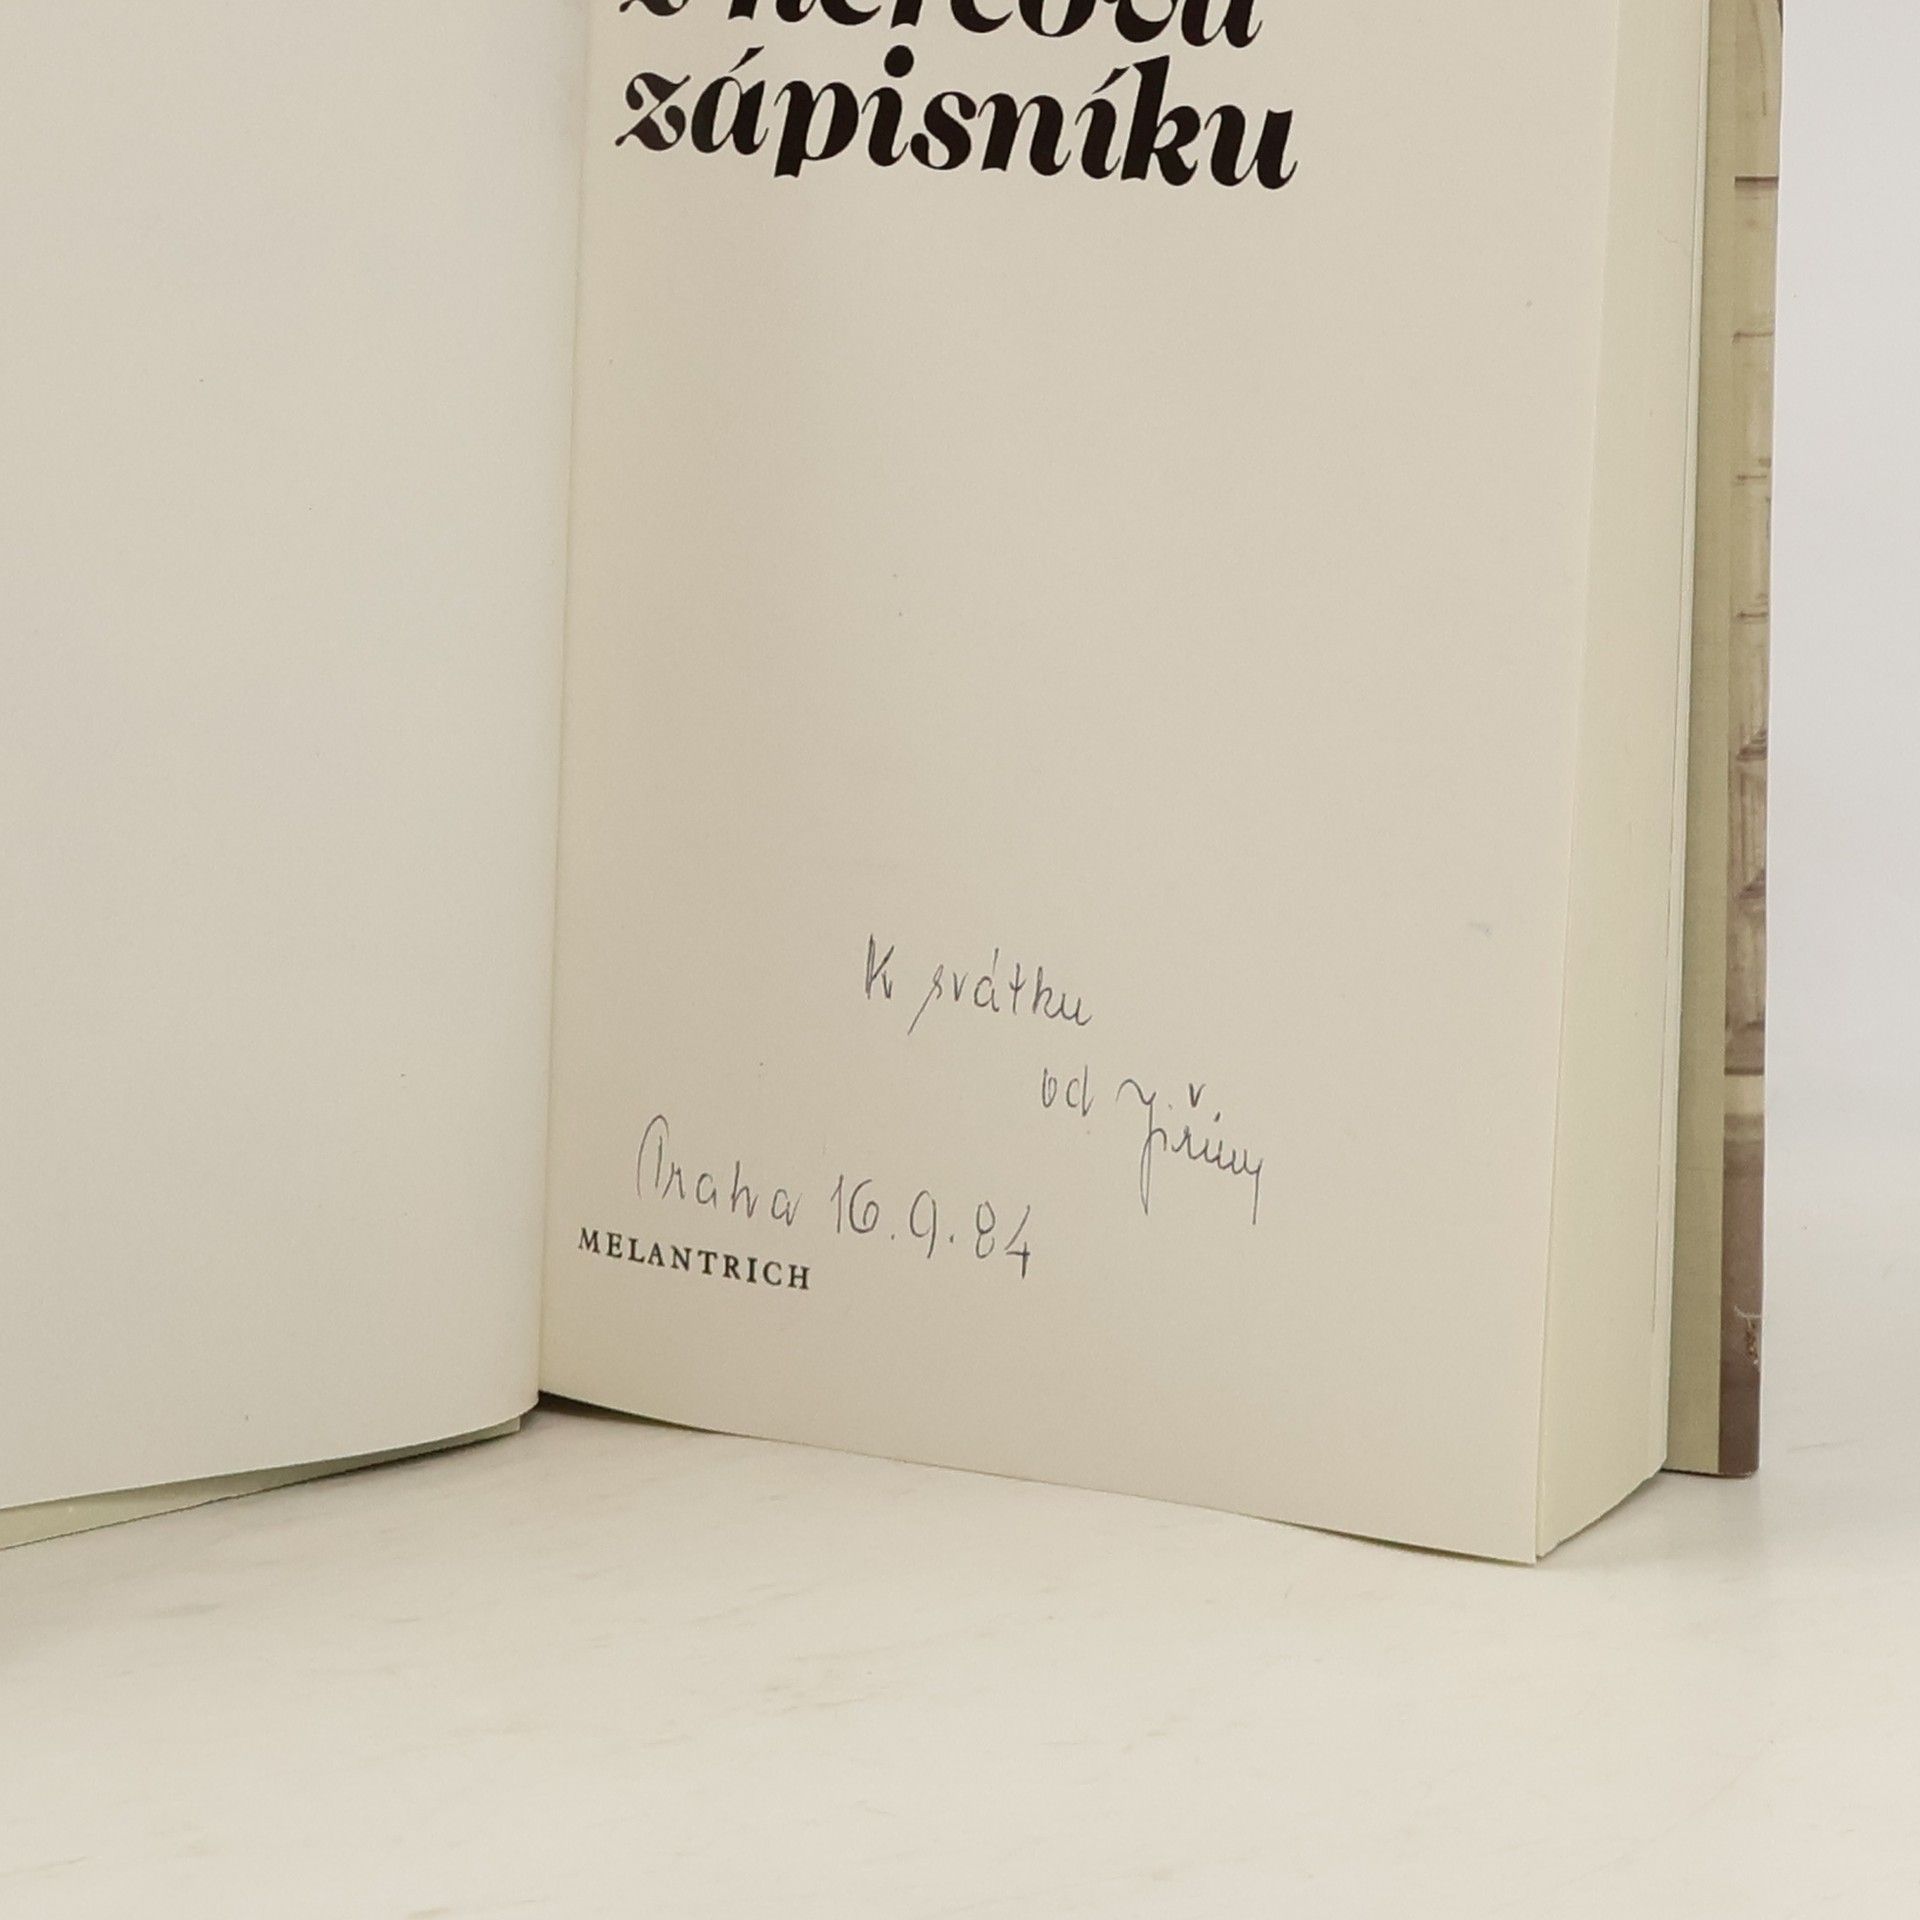 z hercova
zápisníku
K svátku
od Jiřiny
Praha 16.9.84
MELANTRICH